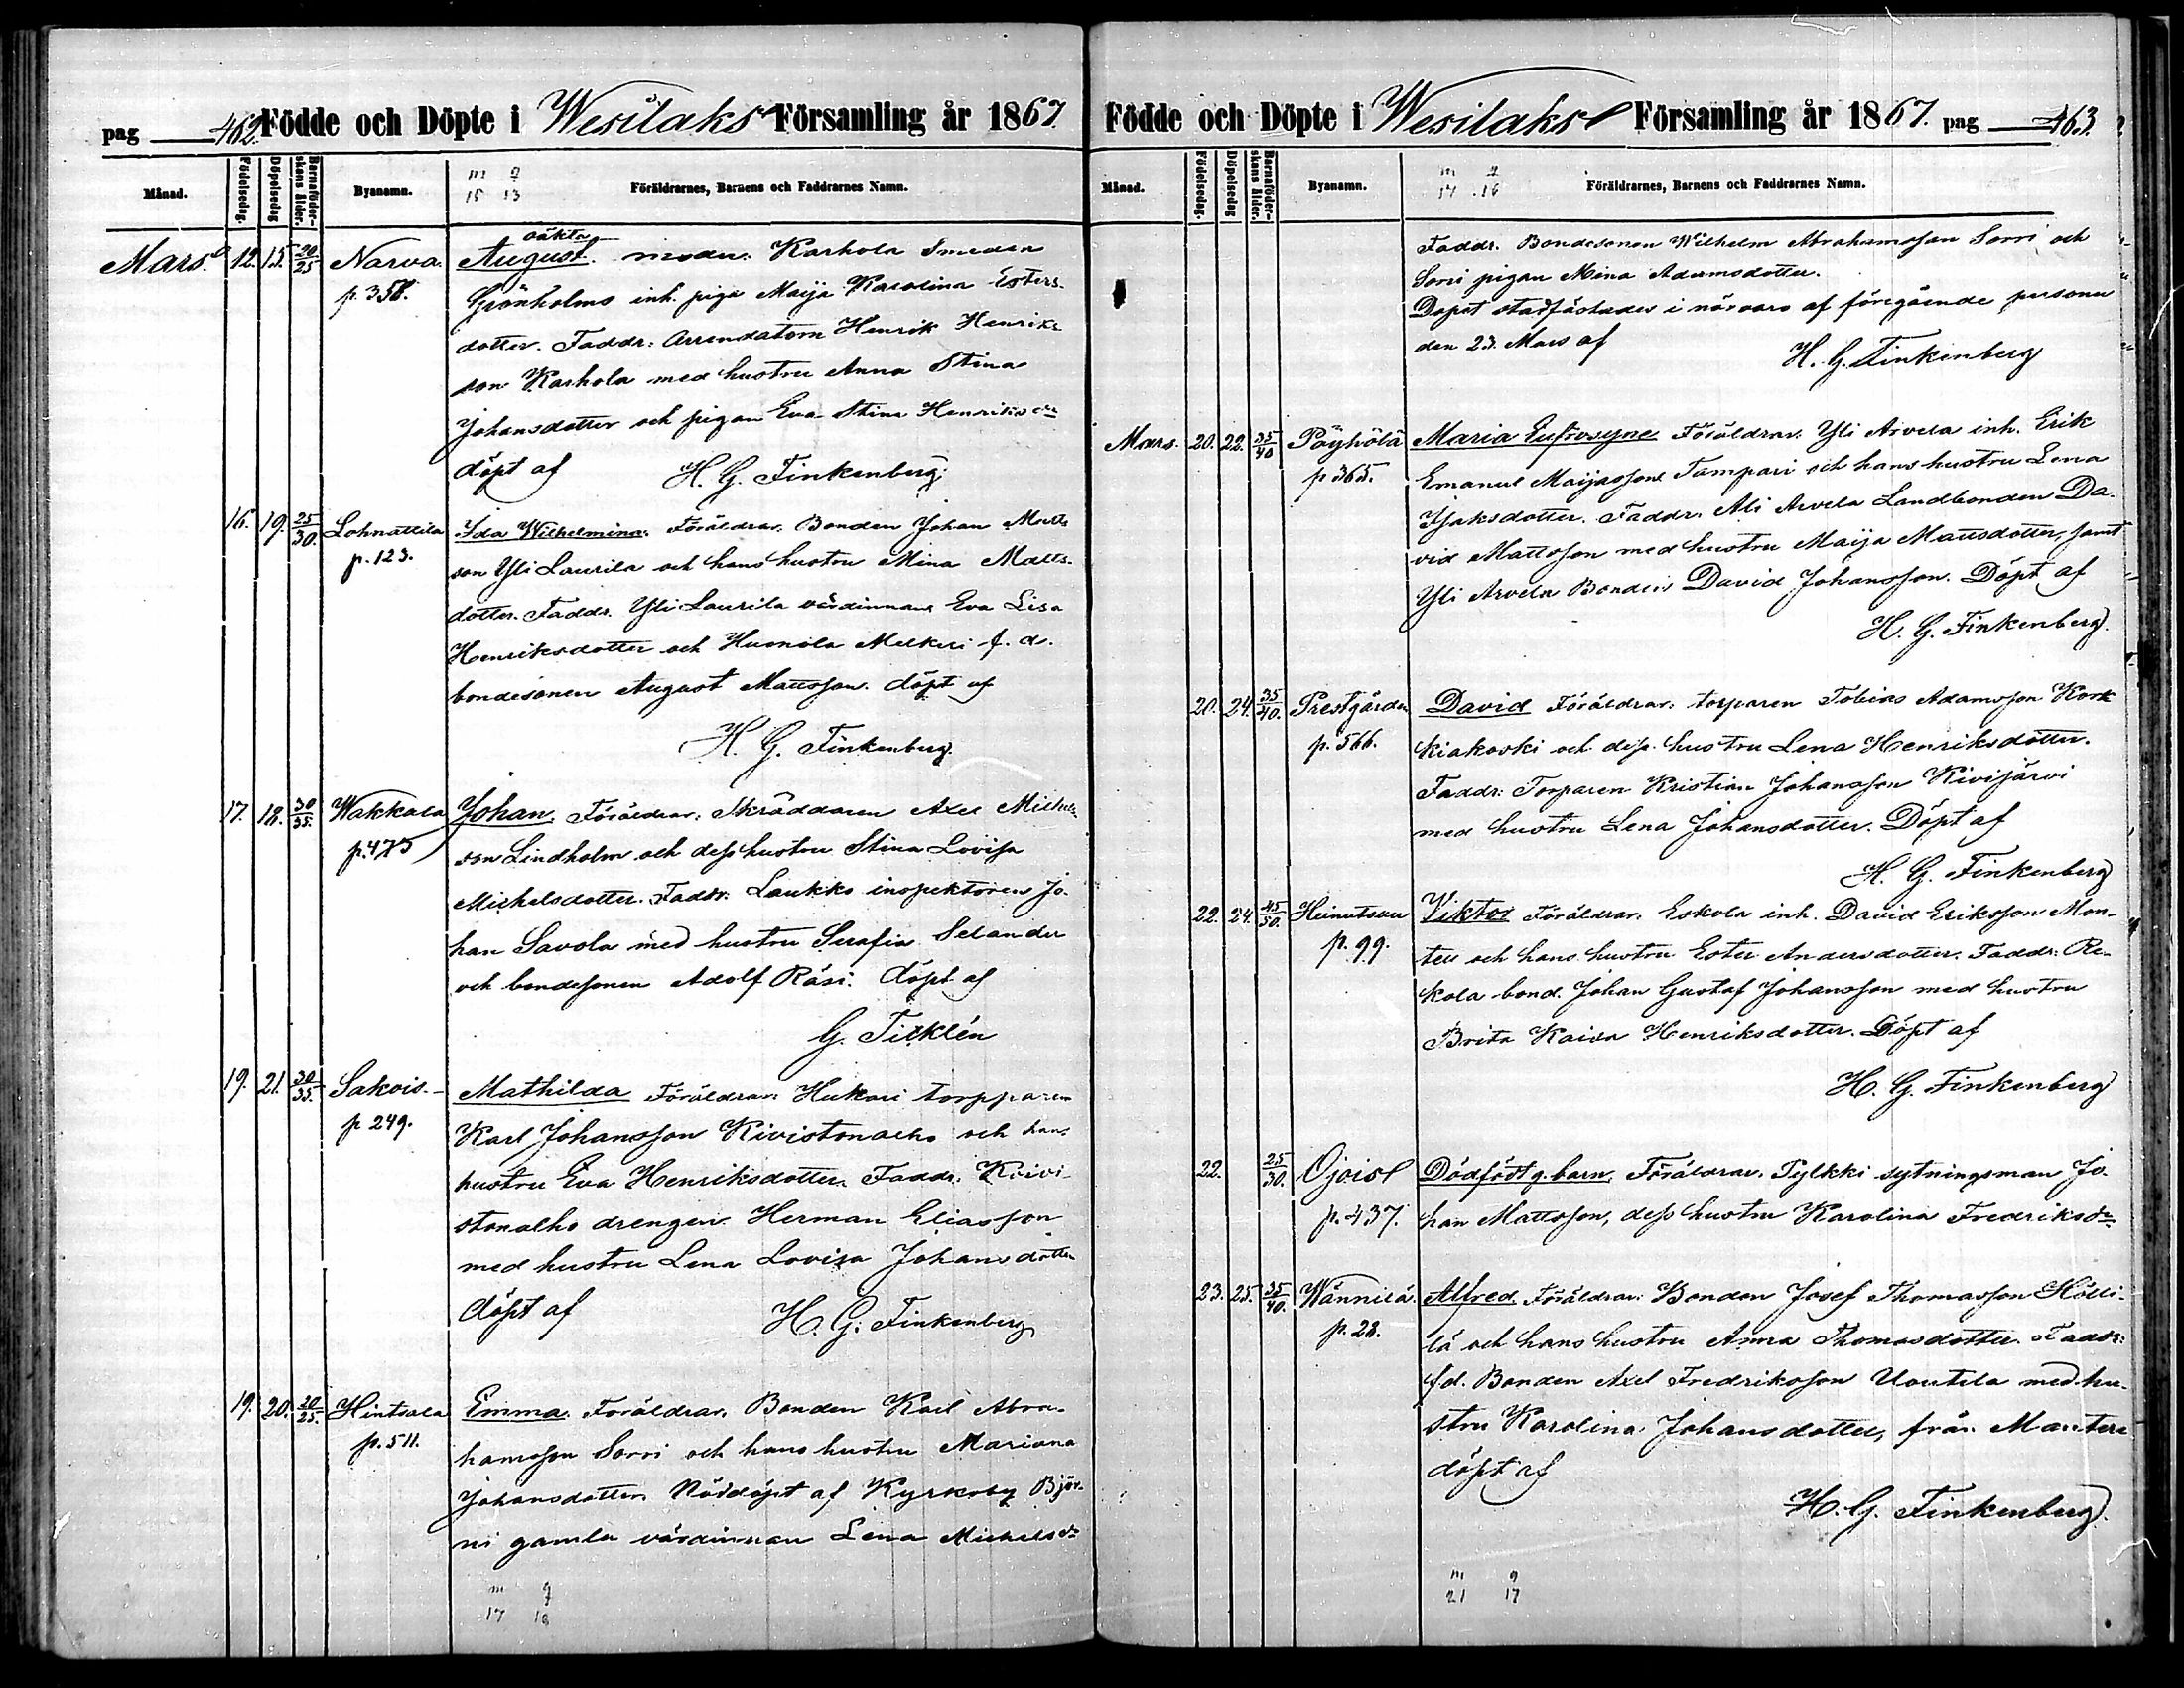 pag 462. Födde och Döpte i Wesilaks Församling år 1867.
Månad. Födelsedag. Döpelsedag Barnaföderskans ålder. Byanamn. Föräldrarnes, Barnens och Faddrarnes Namn.
m q
15 13
oäkta
Mars. 12. 15. 20/25 Narva. August. moder. Karhola Smeden
p. 358. Grönholms inh. piga Maija Karolina Esters-
dotter. Faddr: Arrendatorn Henrik Henriks
son Karhola med hustru Anna Stina
Johansdotter och pigan Eva Stina Henriksdr
döpt af H. G. Finkenberg.
16. 19. 25/30. Lohnattila Ida Wilhelmina. Föräldrar. Bonden Johan Matts
p. 123. son Yli Laurila och hans hustru Mina Matts-
dotter. Faddr. Yli Laurila värdinnan Eva Lisa
Henriksdotter och Huonola Melkeri f. d.
bondesonen August Mattsson. döpt af
H. G. Finkenberg.
17. 18. 30/35. Wakkala Johan. Föräldrar: Skräddaren Axel Michels
p. 475 son Lindholm och dess hustru Stina Lovisa
Michelsdotter. Faddr. Laukko inspektoren Jo-
han Savola med hustru Serafia Selander
och bondesonen Adolf Räsi. döpt af
G. Ticklén
19. 21. 30/35. Sakois. Mathilda Föräldrar: Hukari torpparen
p 249. Karl Johansson Kivistonalho och hans
hustru Eva Henriksdotter. Faddr. Kivi-
stonalho drengen Herman Eliasson
med hustru Lena Lovisa Johansdotter
döpt af H. G. Finkenberg
19. 20. 20/25. Hintsala Emma. Föräldrar. Bonden Karl Abra-
p. 511. hamsson Sorri och hans hustru Mariana
Johansdotter. Nöddöpt af Kyrkoby Björ-
ni gamla värdinnan Lena Michelsdr
m q
17 16
Födde och Döpte i Wesilaks Församling år 1867. pag 463.
Månad. Födelsedag. Döpelsedag Barnaföderskans ålder. Byanamn. Föräldrarnes, Barnens och Faddrarnes Namn.
m q
17 16
Faddr. Bondesonen Wilhelm Abrahamsson Sorri och
Sorri pigan Mina Adamsdotter.
Dopet stadfästades i närvaro af föregående personer
den 23. Mars af
H. G. Finkenberg
Mars. 20. 22. 35/40 Pöyhölä Maria Eufrosyne Föräldrar. Yli Arvela inh. Erik
p 365. Emanuel Maijasson Tampari och hans hustru Lena
Isaksdotter. Faddr. Ali Arvela Landbonden Da-
vid Mattsson med hustru Maija Mattsdotter, samt
Yli Arvela Bonden David Johansson. Döpt af
H. G. Finkenberg.
20. 24. 35/40. Prestgården David Föräldrar: torparen Tobias Adamsson Kork
p. 566. kiakoski och dess hustru Lena Henriksdotter.
Faddr: Torparen Kristian Johansson Kivijärvi
med hustru Lena Johansdotter. Döpt af
H. G. Finkenberg
22. 24. 45/50. Heinutsuu Viktor Föräldrar. Eskola inh. David Eriksson Mon-
p. 99. tell och hans hustru Ester Andersdotter. Faddr: Re-
kola bond. Johan Gustaf Johansson med hustru
Brita Kaisa Henriksdotter. Döpt af
H. G. Finkenberg
22. 25/30. Ojois Dödfödt q. barn. Föräldrar. Tylkki sytningsman Jo-
p. 437. han Mattsson, dess hustru Karolina Fredriksdr
23. 25. 35/40. Wännilä. Alfred. Föräldrar: Bonden Josef Thomasson Hölli-
p. 28. lä och hans hustru Anna Thomasdotter. Faddr:
fd. Bonden Axel Fredriksson Uoutila med hu-
stru Karolina Johansdotter, från Mantere
döpt af
H. G. Finkenberg.
m q
21 17